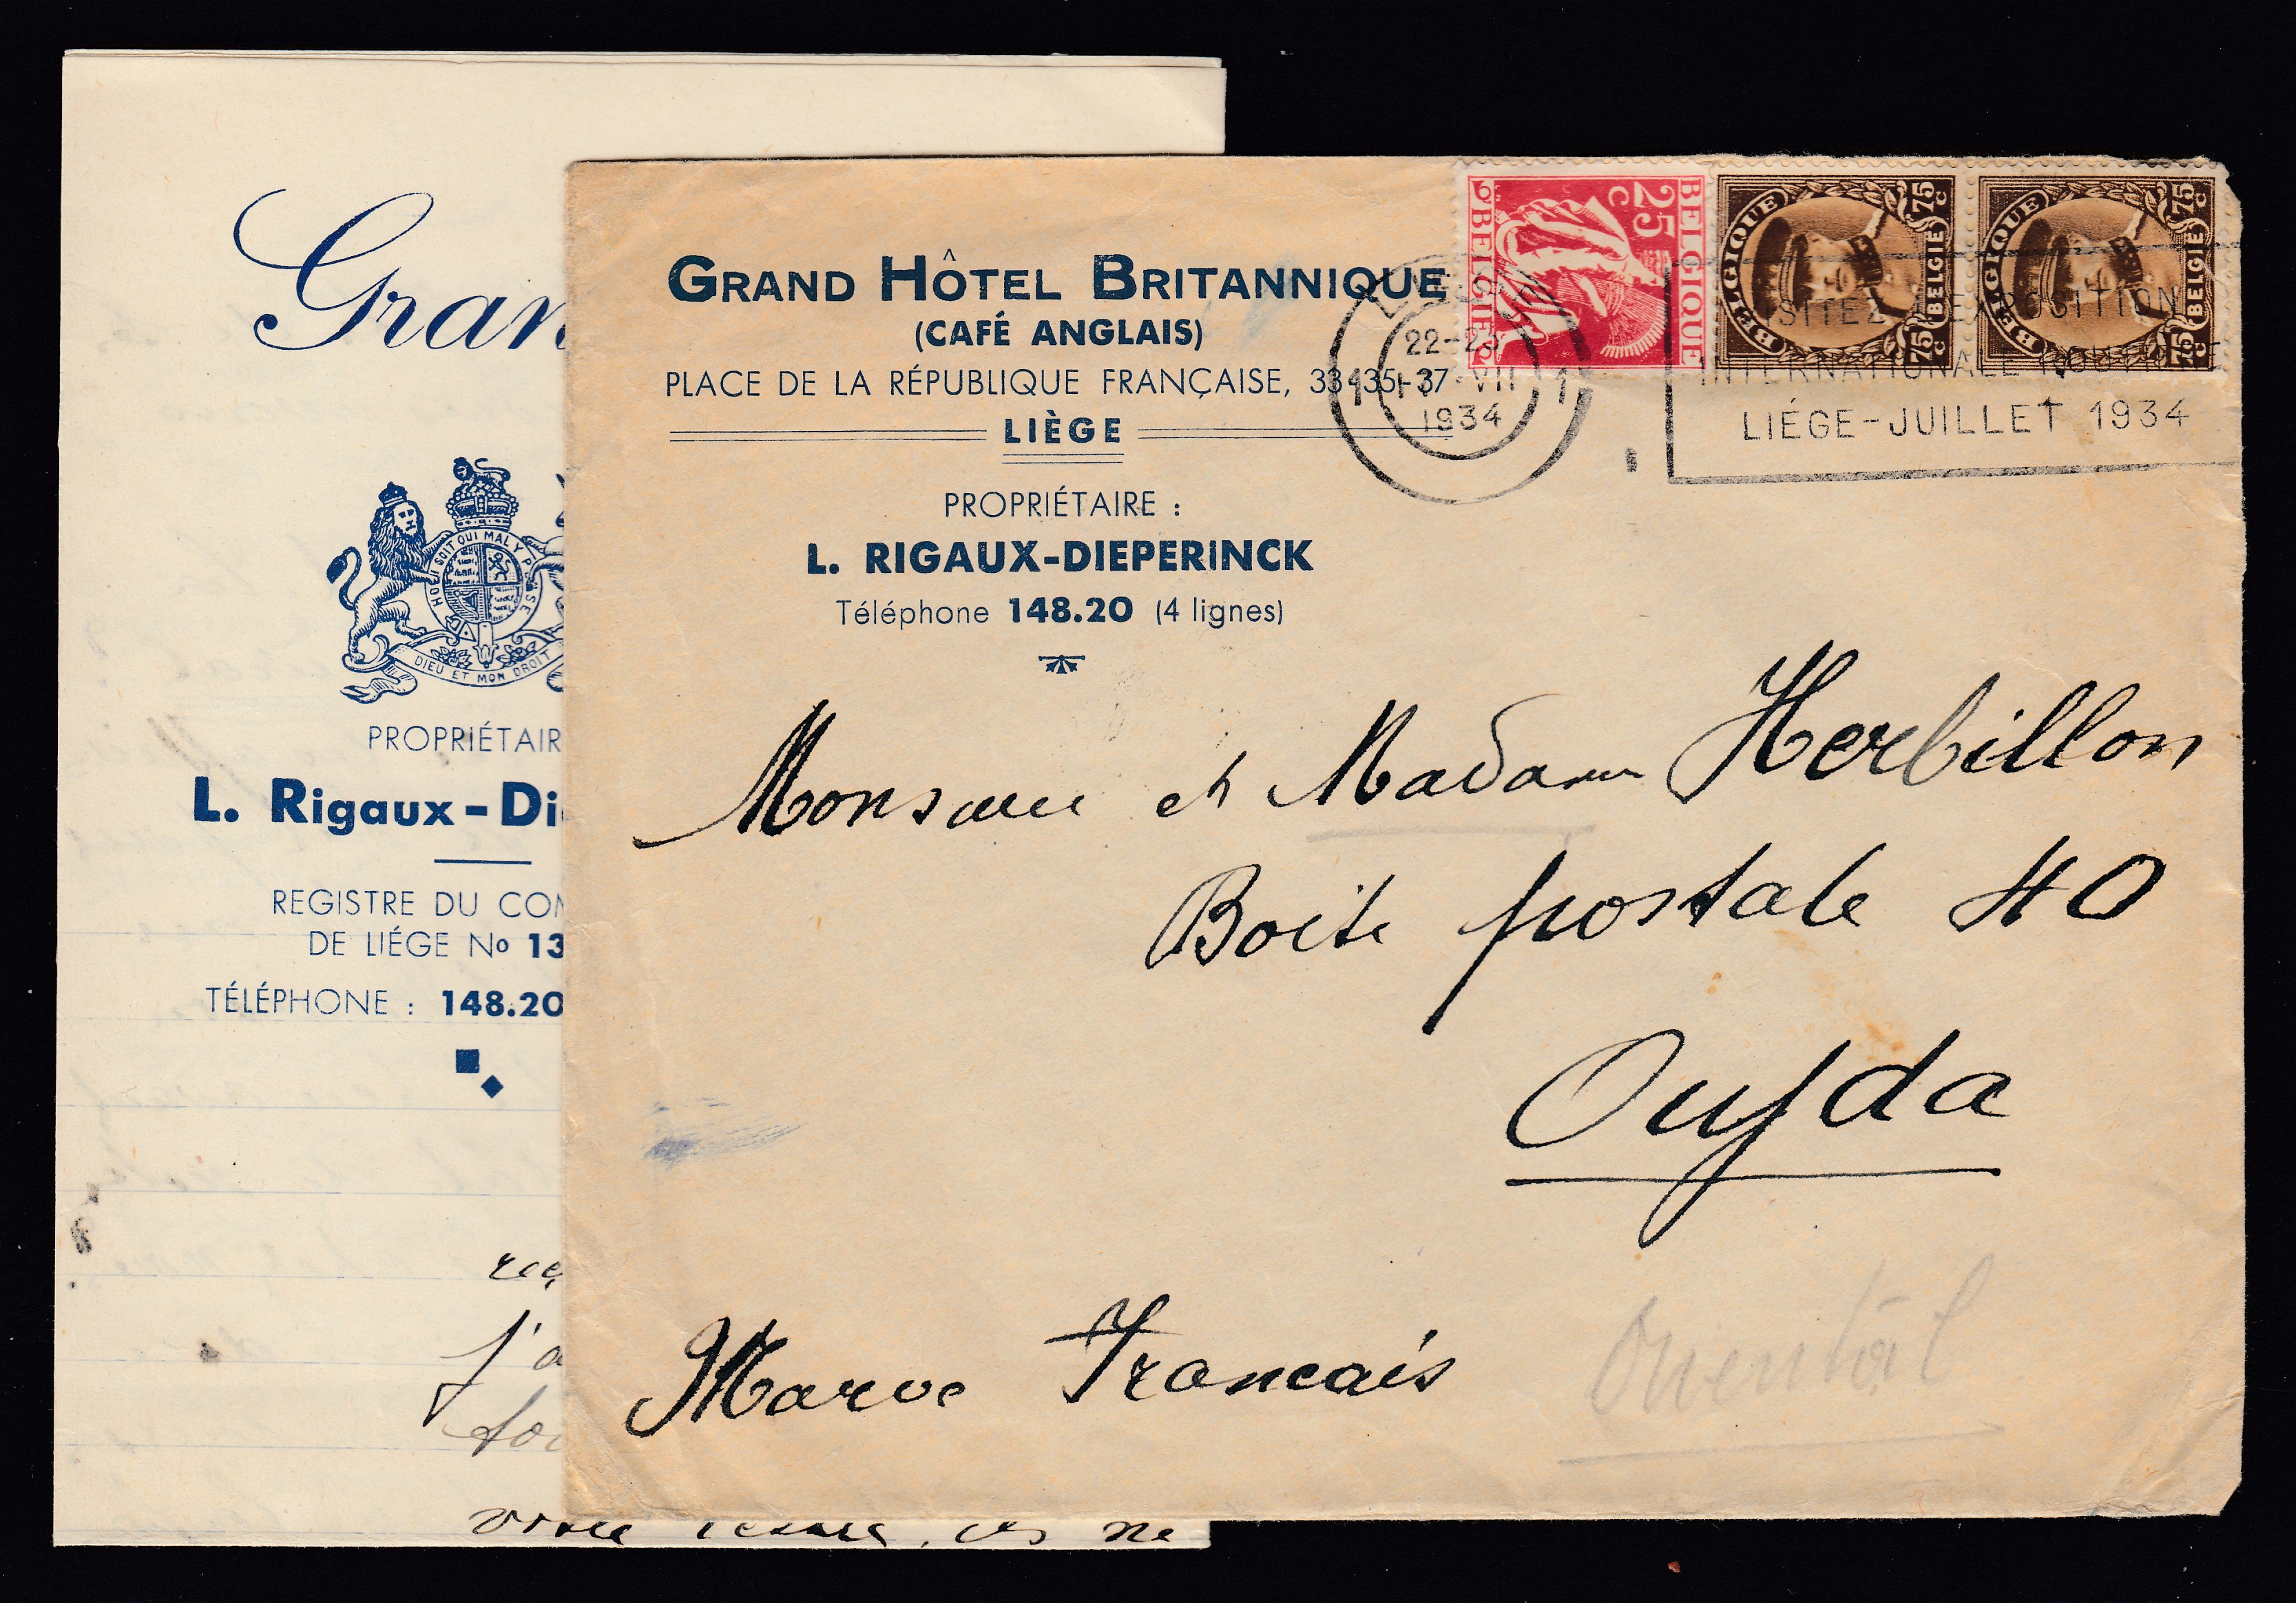 Gran
HONI SOIT QUI MAL Y PENSE
DIEU ET MON DROIT
PROPRIÉTAIR
L. Rigaux-Di
REGISTRE DU COM
DE LIÉGE No 13
TÉLÉPHONE : 148.20
reç
j'a
GRAND HÔTEL BRITANNIQUE
(CAFÉ ANGLAIS)
PLACE DE LA RÉPUBLIQUE FRANÇAISE, 33-35-37
LIÈGE
PROPRIÉTAIRE :
L. RIGAUX-DIEPERINCK
Téléphone 148.20 (4 lignes)
BELGIQUE
25 c
BELGIË
BELGIQUE
75 c
75 c
BELGIË
BELGIQUE
75 c
75 c
BELGIË
22-23
VII
1934
1 1
VISITEZ L'EXPOSITION
INTERNATIONALE
LIÉGE-JUILLET 1934
Monsieur et Madame Herbillon
Boite postale 40
Oujda
Maroc Francais
Oriental